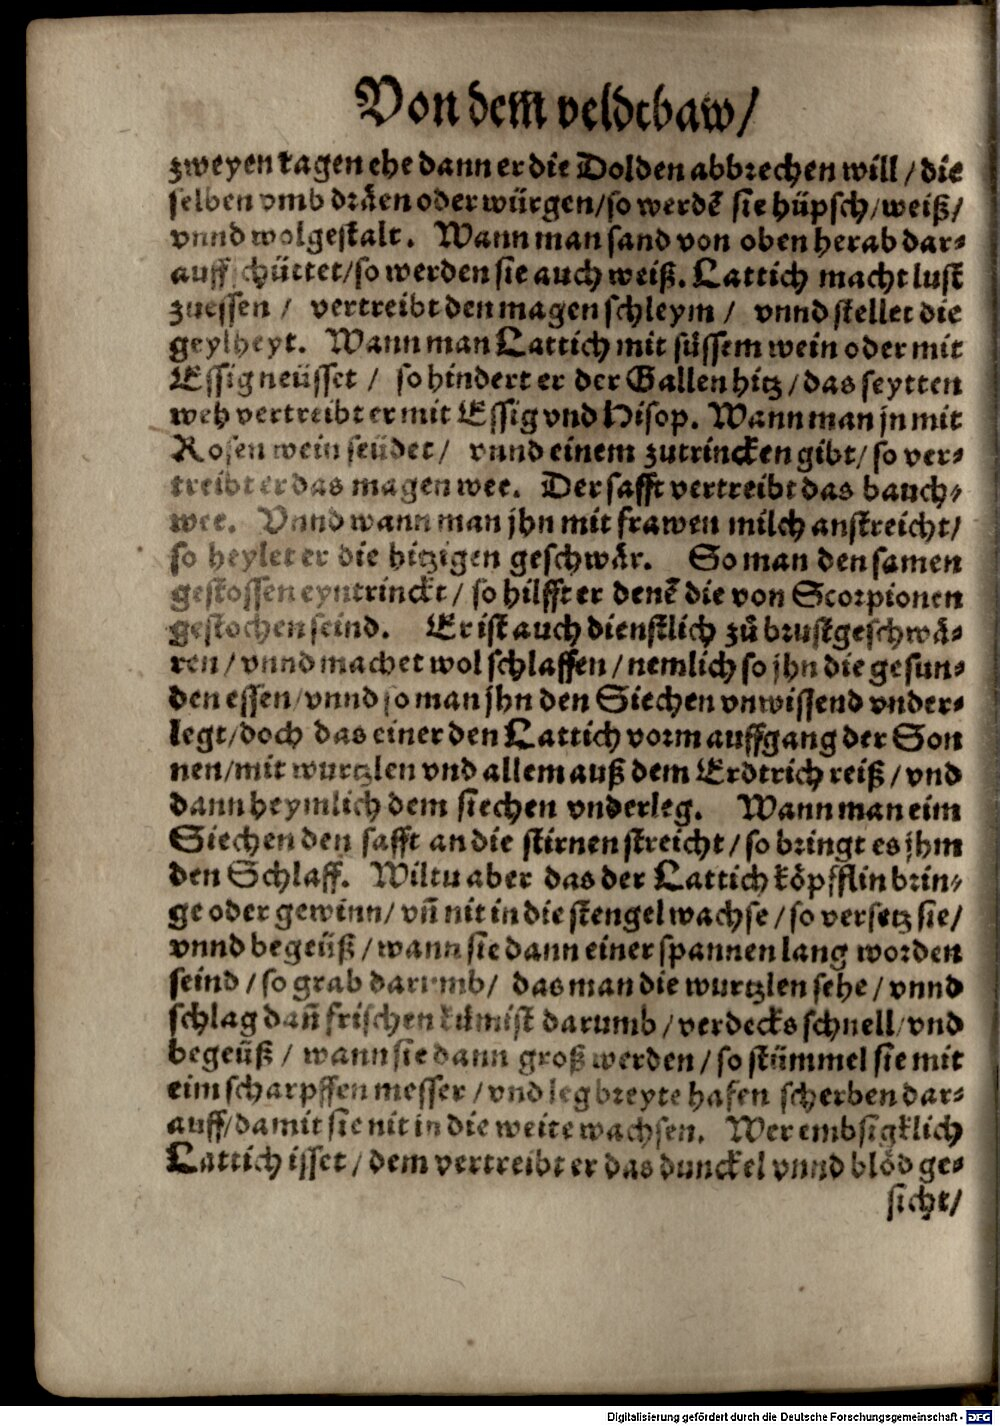 Von dem veldtbaw/
zweyen tagen ehe dann er die Dolden abbrechen will / die
selben vmb dräen oder würgen/so werdẽ sie hüpsch/weiß/
vnnd wolgestalt. Wann man sand von oben herab dar-
auff schüttet/so werden sie auch weiß. Lattich macht lust
zuessen / vertreibt den magen schleym / vnnd stellet die
geylheyt. Wann man Lattich mit süssem wein oder mit
Essig neüsset / so hindert er der Gallen hitz / das seytten
weh vertreibt er mit Essig vnd Hisop. Wann man jn mit
Rosen wein seüdet/ vnnd einem zutrincken gibt/ so ver-
treibt er das magen wee. Der safft vertreibt das bauch-
wee. Vnnd wann man jhn mit frawen milch anstreicht/
so heylet er die hitzigen geschwär. So man den samen
gestossen eyntrinckt / so hilfft er denẽ die von Scorpionen
gestochen seind. Er ist auch dienstlich zů brustgeschwä-
ren / vnnd machet wol schlaffen / nemlich so jhn die gesun-
den essen/vnnd so man jhn den Siechen vnwissend vnder-
legt/doch das einer den Lattich vorm auffgang der Son
nen/mit wurtzlen vnd allem auß dem Erdtrich reiß / vnd
dann heymlich dem siechen vnderleg. Wann man eim
Siechen den safft an die stirnen streicht / so bringt es jhm
den Schlaff. Wiltu aber das der Lattich köpfflin brin-
ge oder gewinn/ vñ nit in die stengel wachse / so versetz sie/
vnnd begeüß / wann sie dann einer spannen lang worden
seind / so grab darumb/ das man die wurtzlen sehe / vnnd
schlag dañ frischen kümist darumb / verdecks schnell/vnd
begeüß / wann sie dann groß werden / so stümmel sie mit
eim scharpffen messer / vnd leg breyte hafen scherben dar-
auff/damit sie nit in die weite wachsen. Wer embsigklich
Lattich isset / dem vertreibt er das dunckel vnnd blöd ge-
sicht/
Digitalisierung gefördert durch die Deutsche Forschungsgemeinschaft - DFG